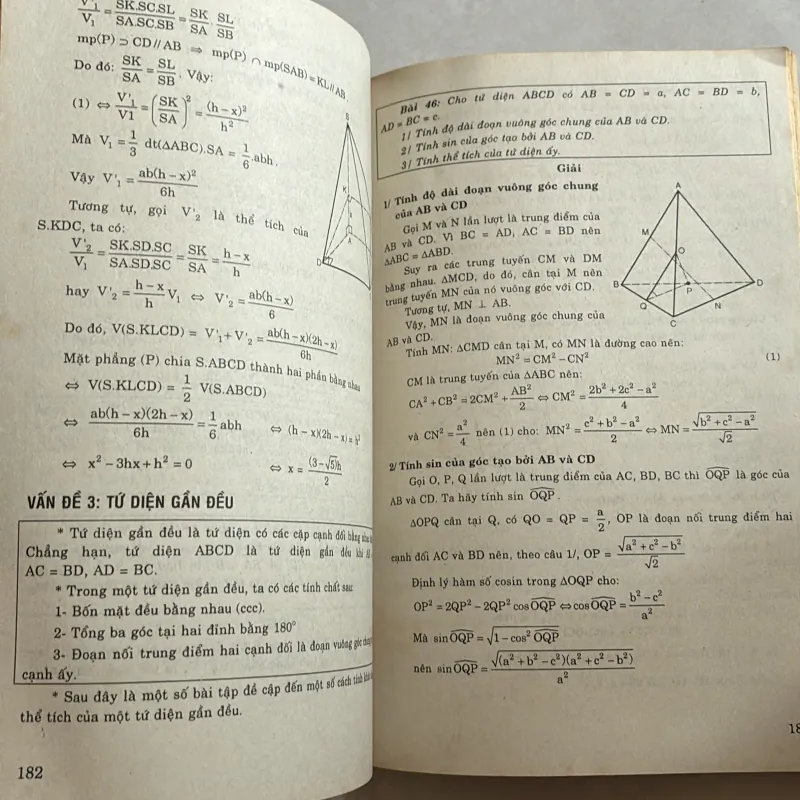 V'₁/V₁ = SK.SC.SL/SA.SC.SB = SK/SA . SL/SB
mp(P) ⊃ CD // AB ⇒ mp(P) ∩ mp(SAB) = KL // AB.
Do đó: SK/SA = SL/SB. Vậy:
(1) ⇔ V'₁/V1 = (SK/SA)² = (h – x)²/h²
Mà V₁ = 1/3 dt(ΔABC).SA = 1/6.abh.
Vậy V'₁ = ab(h – x)²/6h
Tương tự, gọi V'₂ là thể tích của
S.KDC, ta có:
V'₂/V₁ = SK.SD.SC/SA.SD.SC = SK/SA = h – x/h
hay V'₂ = h – x/h V₁ ⇔ V'₂ = ab(h – x)/6
Do đó, V(S.KLCD) = V'₁ + V'₂ = ab(h – x)(2h – x)/6h
Mặt phẳng (P) chia S.ABCD thành hai phần bằng nhau
⇔ V(S.KLCD) = 1/2 V(S.ABCD)
⇔ ab(h – x)(2h – x)/6h = 1/6 abh ⇔ (h – x)(2h – x) = h²
⇔ x² – 3hx + h² = 0 ⇔ x = (3 – √5)h/2
VẤN ĐỀ 3: TỨ DIỆN GẦN ĐỀU
* Tứ diện gần đều là tứ diện có các cặp cạnh đối bằng
Chẳng hạn, tứ diện ABCD là tứ diện gần đều khi
AC = BD, AD = BC.
* Trong một tứ diện gần đều, ta có các tính chất sau:
1- Bốn mặt đều bằng nhau (ccc).
2- Tổng ba góc tại hai đỉnh bằng 180°
3- Đoạn nối trung điểm hai cạnh đối là đoạn vuông góc
cạnh ấy.
* Sau đây là một số bài tập đề cập đến một số cách tính
thể tích của một tứ diện gần đều.
182
S
K
A
D
Bài 46: Cho tứ diện ABCD có AB = CD = a, AC = BD = b,
AD = BC = c.
1/ Tính độ dài đoạn vuông góc chung của AB và CD.
2/ Tính sin của góc tạo bởi AB và CD.
3/ Tính thể tích của tứ diện ấy.
Giải
1/ Tính độ dài đoạn vuông góc chung
của AB và CD
Gọi M và N lần lượt là trung điểm của
AB và CD. Vì BC = AD, AC = BD nên
ΔABC = ΔABD.
Suy ra các trung tuyến CM và DM
bằng nhau. ΔMCD, do đó, cân tại M nên
trung tuyến MN của nó vuông góc với CD.
Tương tự, MN ⊥ AB.
Vậy, MN là đoạn vuông góc chung của
AB và CD.
A
M
O
B
P
D
Q
N
C
Tính MN: ΔCMD cân tại M, có MN là đường cao nên:
MN² = CM² – CN² (1)
CM là trung tuyến của ΔABC nên:
CA² + CB² = 2CM² + AB²/2 ⇔ CM² = 2b² + 2c² – a²/4
và CN² = a²/4 nên (1) cho: MN² = c² + b² – a²/2 ⇔ MN = √b² + c² – a²/√2
2/ Tính sin của góc tạo bởi AB và CD
Gọi O, P, Q lần lượt là trung điểm của AC, BD, BC thì OQP là góc của
AB và CD. Ta hãy tính sin OQP.
ΔOPQ cân tại Q, có QO = QP = a/2, OP là đoạn nối trung điểm hai
cạnh đối AC và BD nên, theo câu 1/, OP = √a² + c² – b²/√2
Định lý hàm số cosin trong ΔOQP cho:
OP² = 2QP² – 2QP² cos OQP ⇔ cos OQP = b² – c²/a²
Mà sin OQP = √1 – cos² OQP
nên sin OQP = √(a² + b² – c²)(a² + c² – b²)/a²